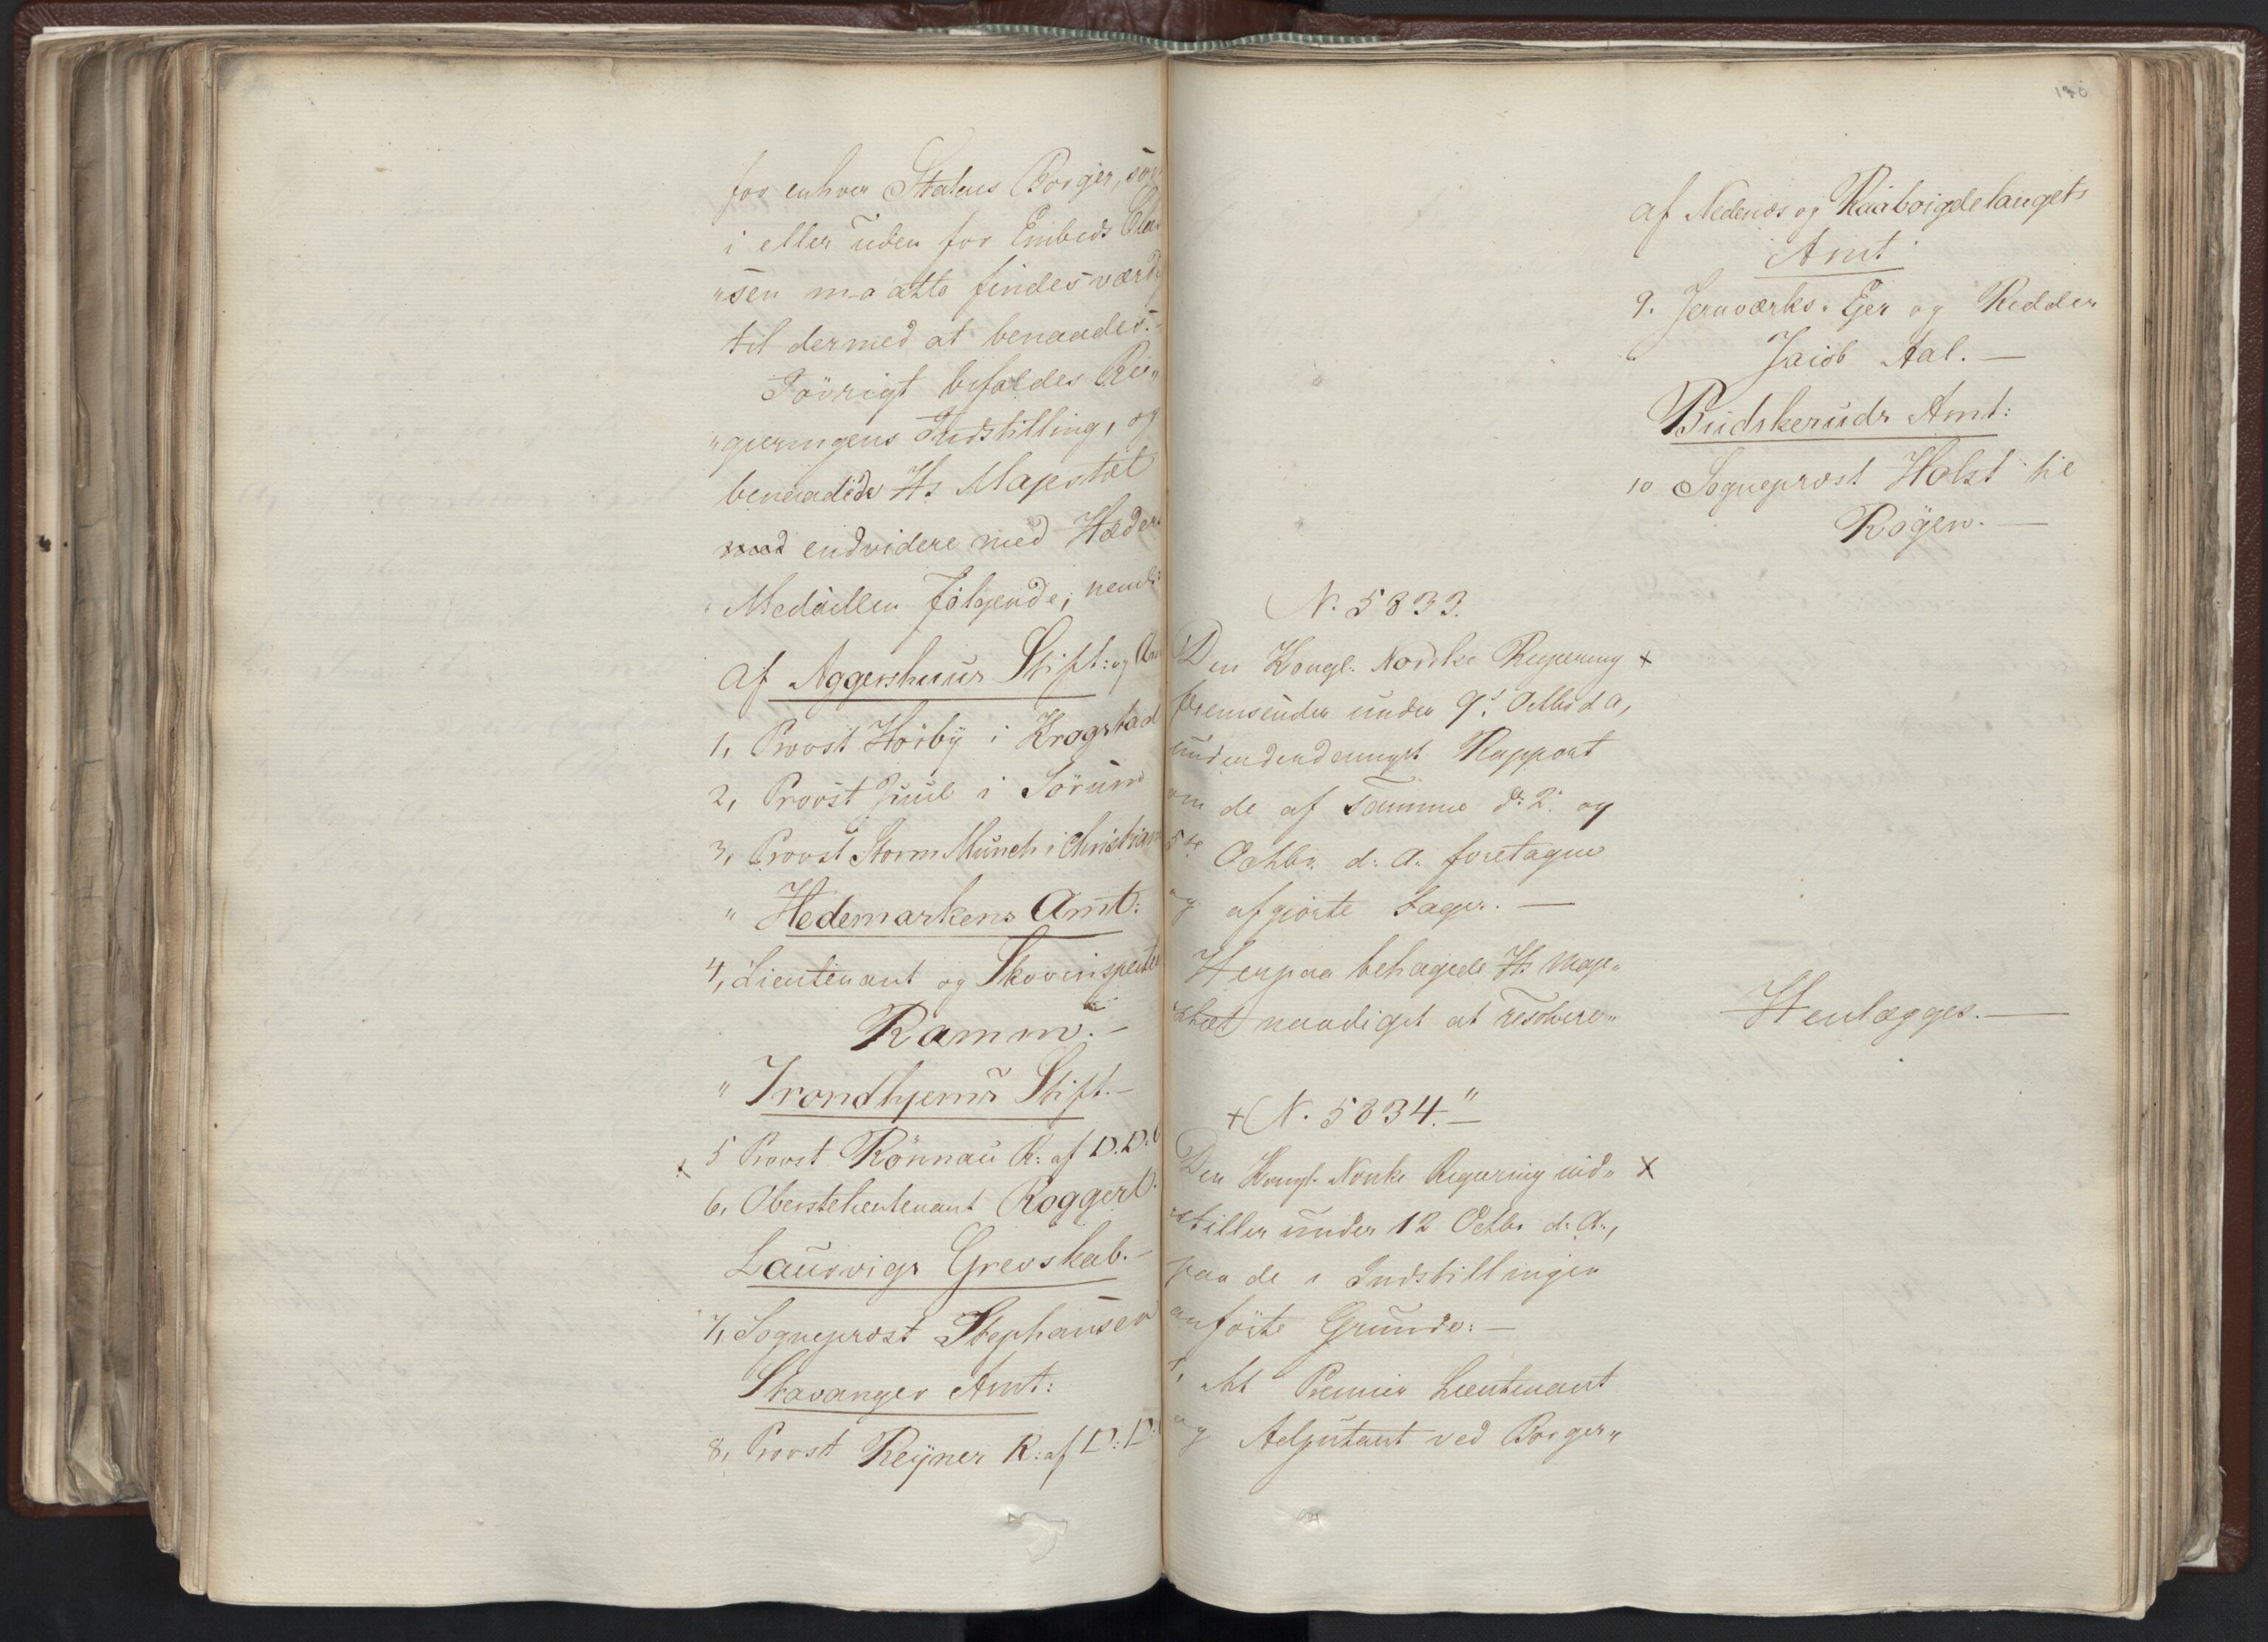 for enhver Statens Borger, som
i eller uden for Embeds Clas
"sen maatte findes værdig
til dermed at benaades.-
Iövrigt befaldes Re„
"gjeringens Indstilling, og
benaadede Hs Majestæt
endvidere med Hæders
Medaillen følgende; neml:
af Aggershuus Stift: og Amt
1, Provst Hörbÿ i Krogstad
2, Provst Juul i Sörum
3, Provst Storm Munch i Christian
" Hedemarkens Amt:
4, Lieutenant og Skovinspecteur
Ramm.-
" Trondhjems Stift.-
x 5 Provst Rönnau R: af D.D:O
6, Oberstelieutenant Roggert.
Laurvigs Grevskab.-
7, Sogneprest Stephansen
Stavanger Amt:
8, Provst Reÿner R: af D: D:
130
af Nedenæs og Raaböigdelaugets
Amt
9. Jernværks-Ejer og Ridder
Jacob Aal.-
Budskeruds Amt:
10 Sogneprest Holst til
Rögen.-
N. 5833.
Den Kongl. Norske Regjering x
fremsender under 9d Octbr d A,
underdanigst Rapport
om de af Samme d: 2: og
5te Octbr. d: A. foretagne
og afgiorte Sager.-
Herpaa behagede Hs Maje„
"stæt naadigst at resolvere„
Henlægges.-
+ N. 5834."
Den Kongl. Norske Regjering ind„ x
"stiller under 12 Octbr d: A:,
paa de i Indstillingen
anförte Grunde:-
1, At Premier Lieutenant
og Adjutant ved Borger„